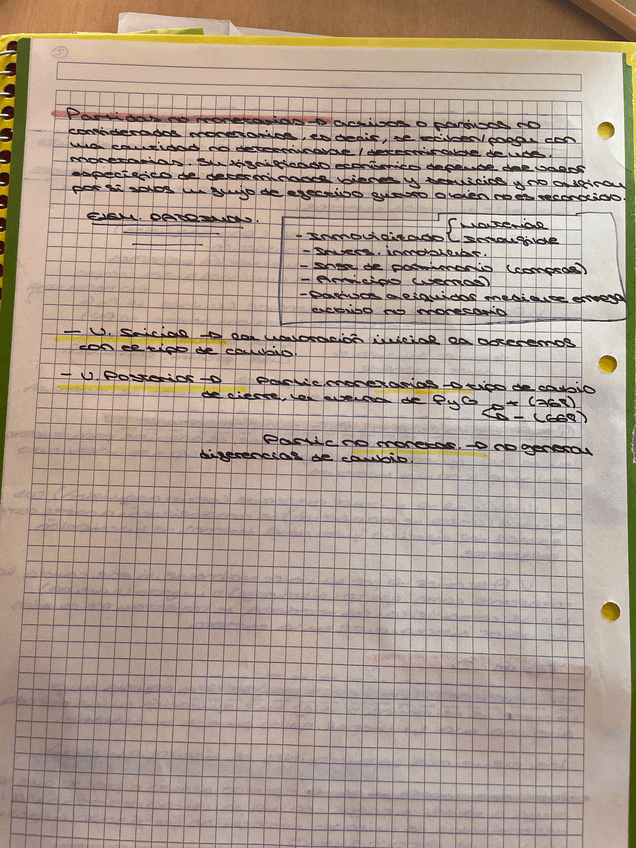 Partidas no monetarias → activos o pasivos no
considerados monetarios, es decir, se reciben/pagan con
una cantidad no determinada/determinable de uds.
monetarias. Su significado económico depende del valor
específico de determinados bienes y servicios y no originan
por sí solos un flujo de efectivo futuro o bien no es reconocido.
EJEM.
- Inmovilizado { Material
Intangible
- Invers. inmobiliar.
- Inst de patrimonio (compras)
- Anticipo (ventas)
- Pasivos a liquidar mediante entrega
activo no monetario
- V. Inicial → La valoración inicial la haremos
con el tipo de cambio.
- V. Posterior → Partic monetarias → tipo de cambio
de cierre, la cuenta de PyG → + (768)
→ - (668)
Partic no monetar. → no generan
diferencias de cambio.